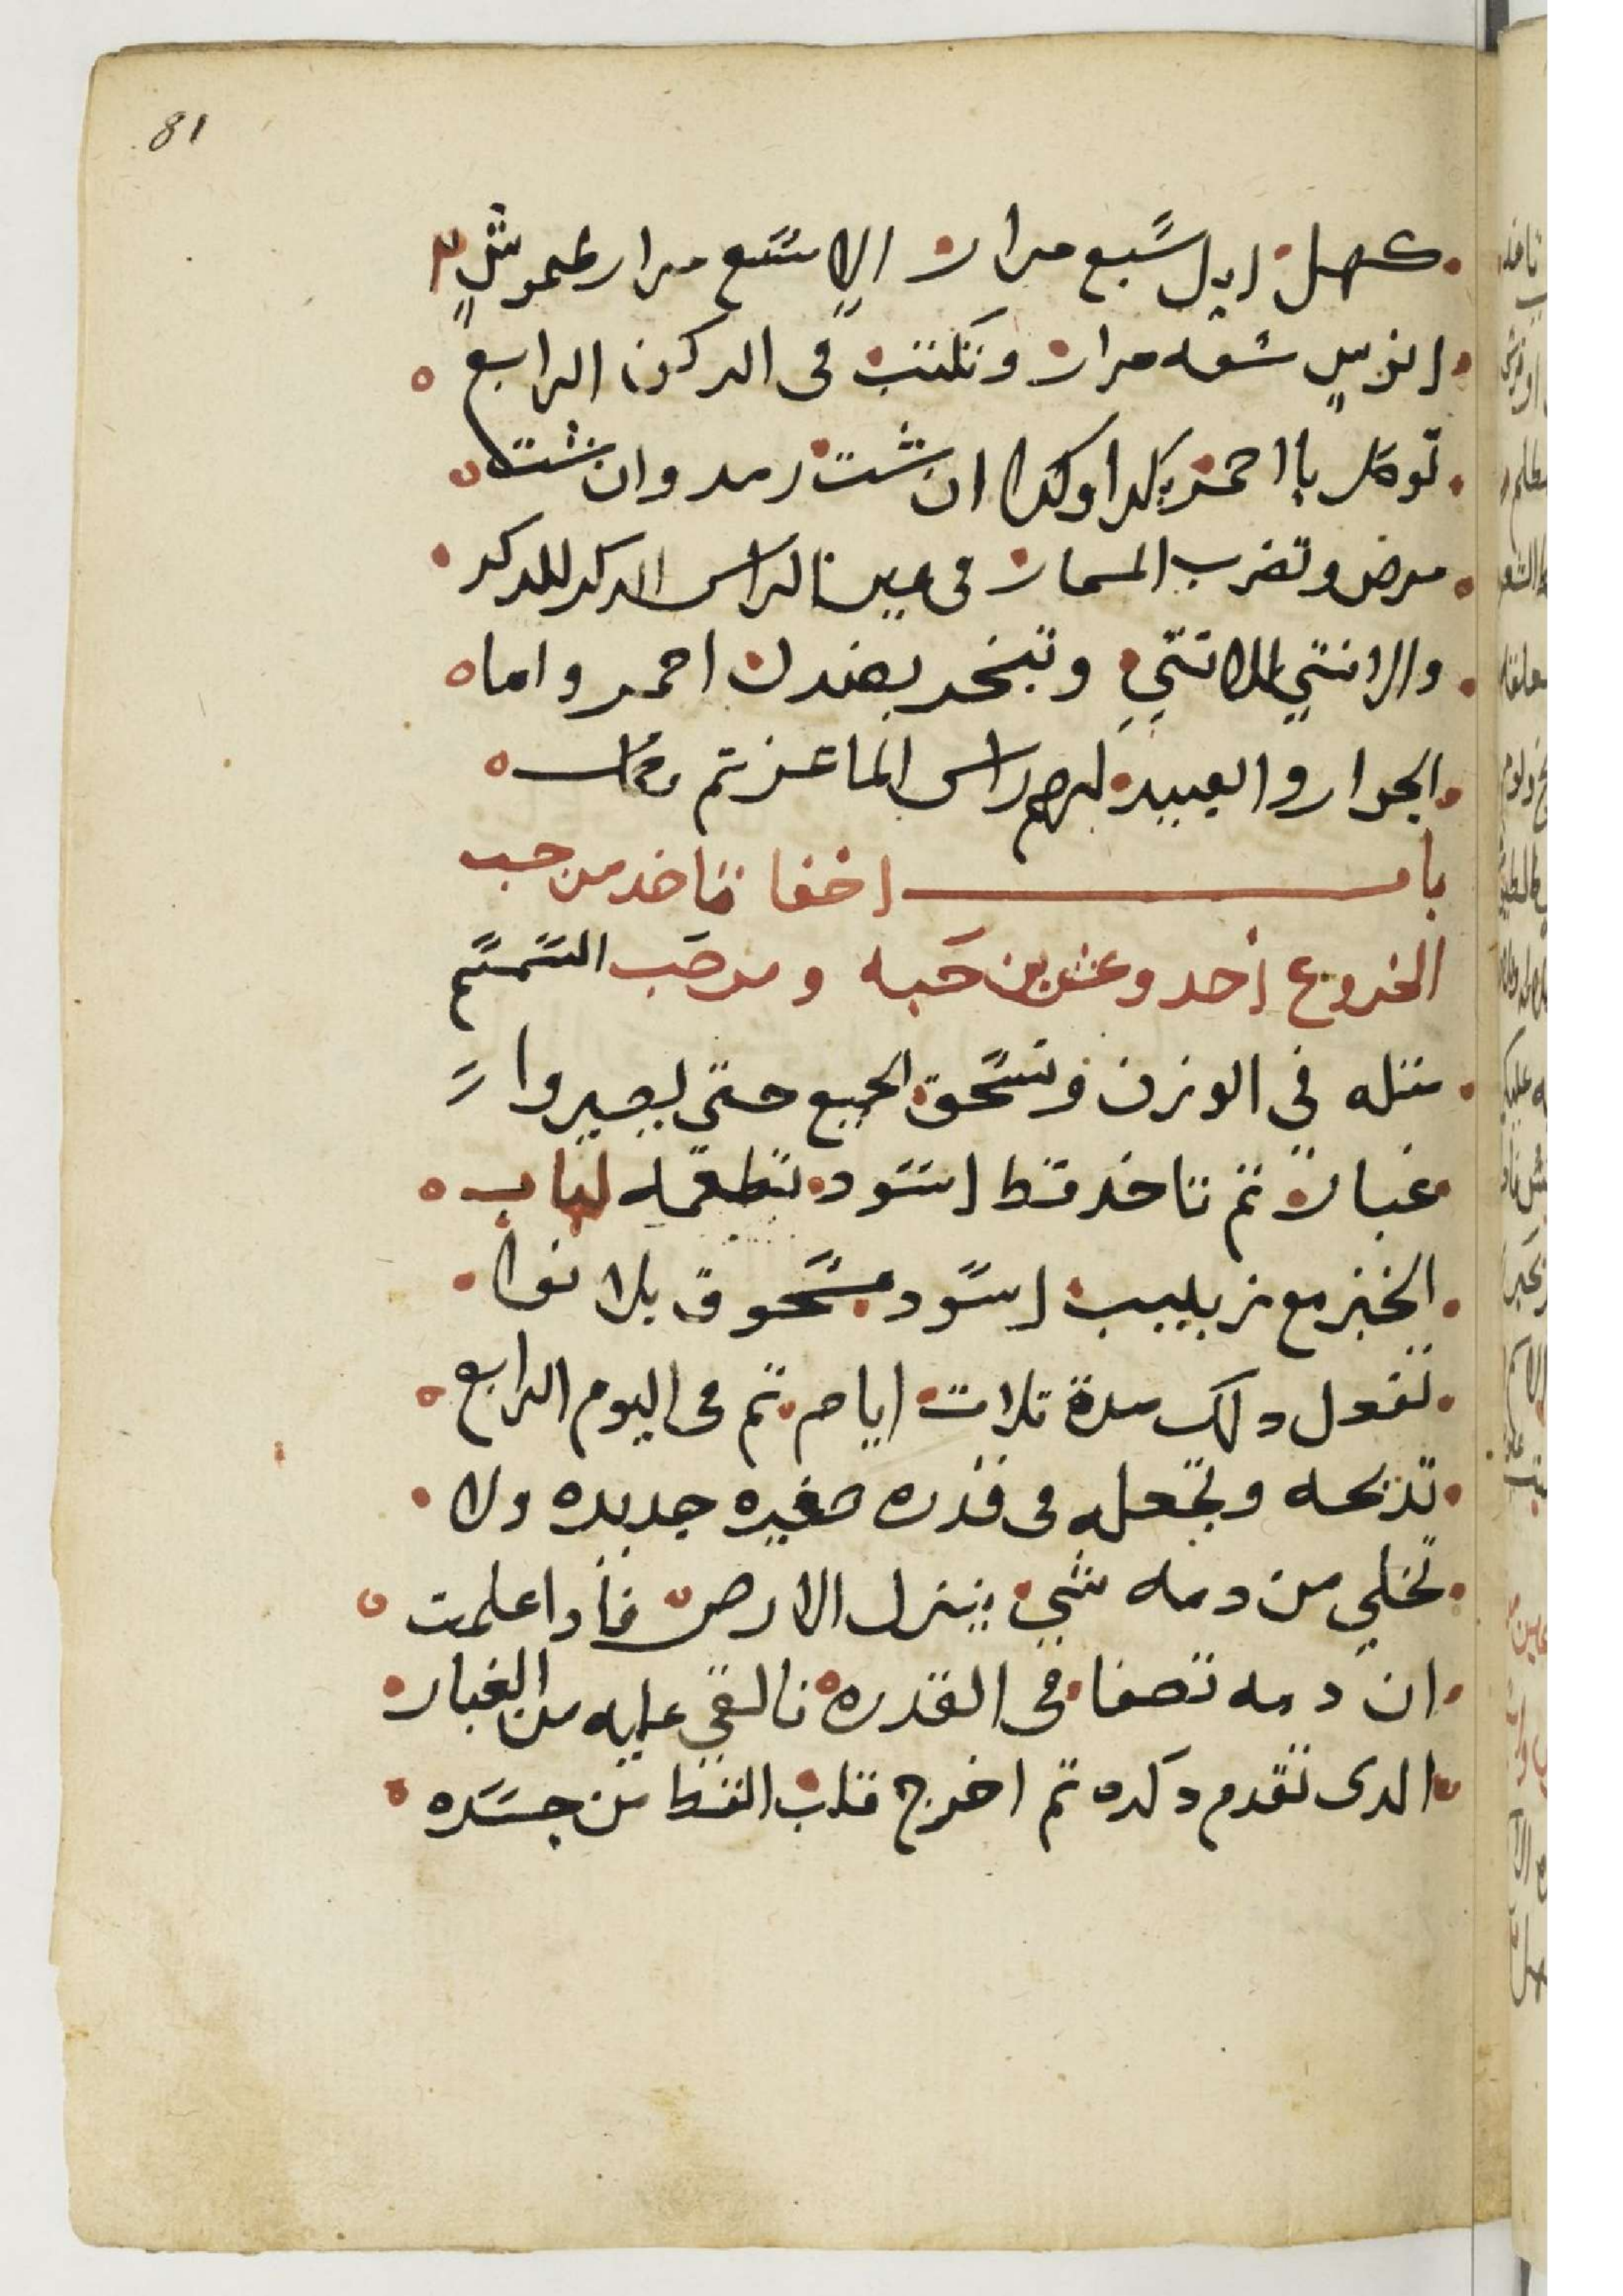 81
كهل ايل سبع مرار الا سبع مرار طموش
انوس سبعه مرار وتكتب فى الركن الرابع
توكل يا احمر بكدا وكدا ان شت رمد وان شت
مرض وتضرب المسمار فى عين الراس الدكر للدكر
والانتي للانتي وتبخر بصندل احمر واما
الجوار والعبيد لهم راس الماعز تم
باب اخفا تاخد من حب
الخروع احد وعشرين حبه ومر حب السمسم
متله في الوزن وتسحق الجميع حتي يصيروا
غبار تم تاخد قط اسود تطعمه لباب
الخبز مع زبيب اسود مسحوق بلا نوا
تفعل دلك مدة تلات ايام تم فى اليوم الرابع
تدبحه وتجعله فى قدره صغيره جديده ولا
تخلي من دمه شي ينزل الارض فادا علمت
ان دمه تصفا فى القدره فالقي عليه من الغبار
الدى تقدم دكره تم اخرج قلب القط من جسده